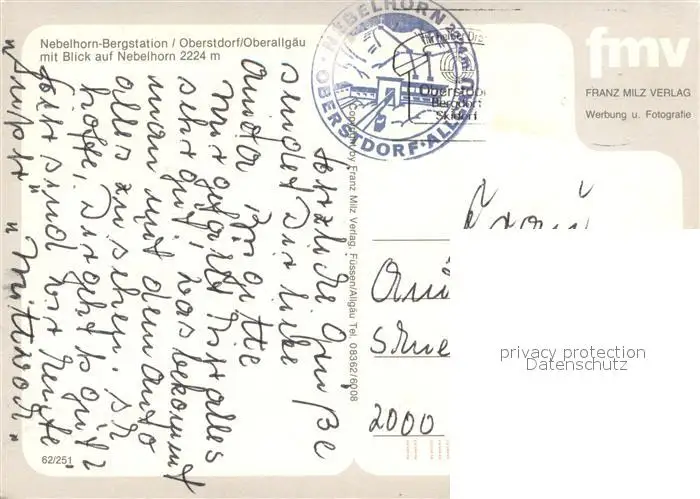 Nebelhorn-Bergstation / Oberstdorf/Oberallgäu
mit Blick auf Nebelhorn 2224 m
NEBELHORN 2224 m
OBERSTDORF · ALLGÄU
Oberstdorf
Bergdorf
Skidorf
fmv
FRANZ MILZ VERLAG
Werbung u. Fotografie
Copyright by Franz Milz Verlag, Füssen/Allgäu Tel. 08362/6008
Herzliche Grüße
sendet Dir liebe
Anita Brigitte
mir gefällt hier alles
sehr gut, was bekommt
man mit dem Auto
alles zu sehen. Ich
hoffe, Dir geht es gut
Jetzt sind wir heute
" Mittwoch "
Frau
2000
privacy protection
Datenschutz
62/251